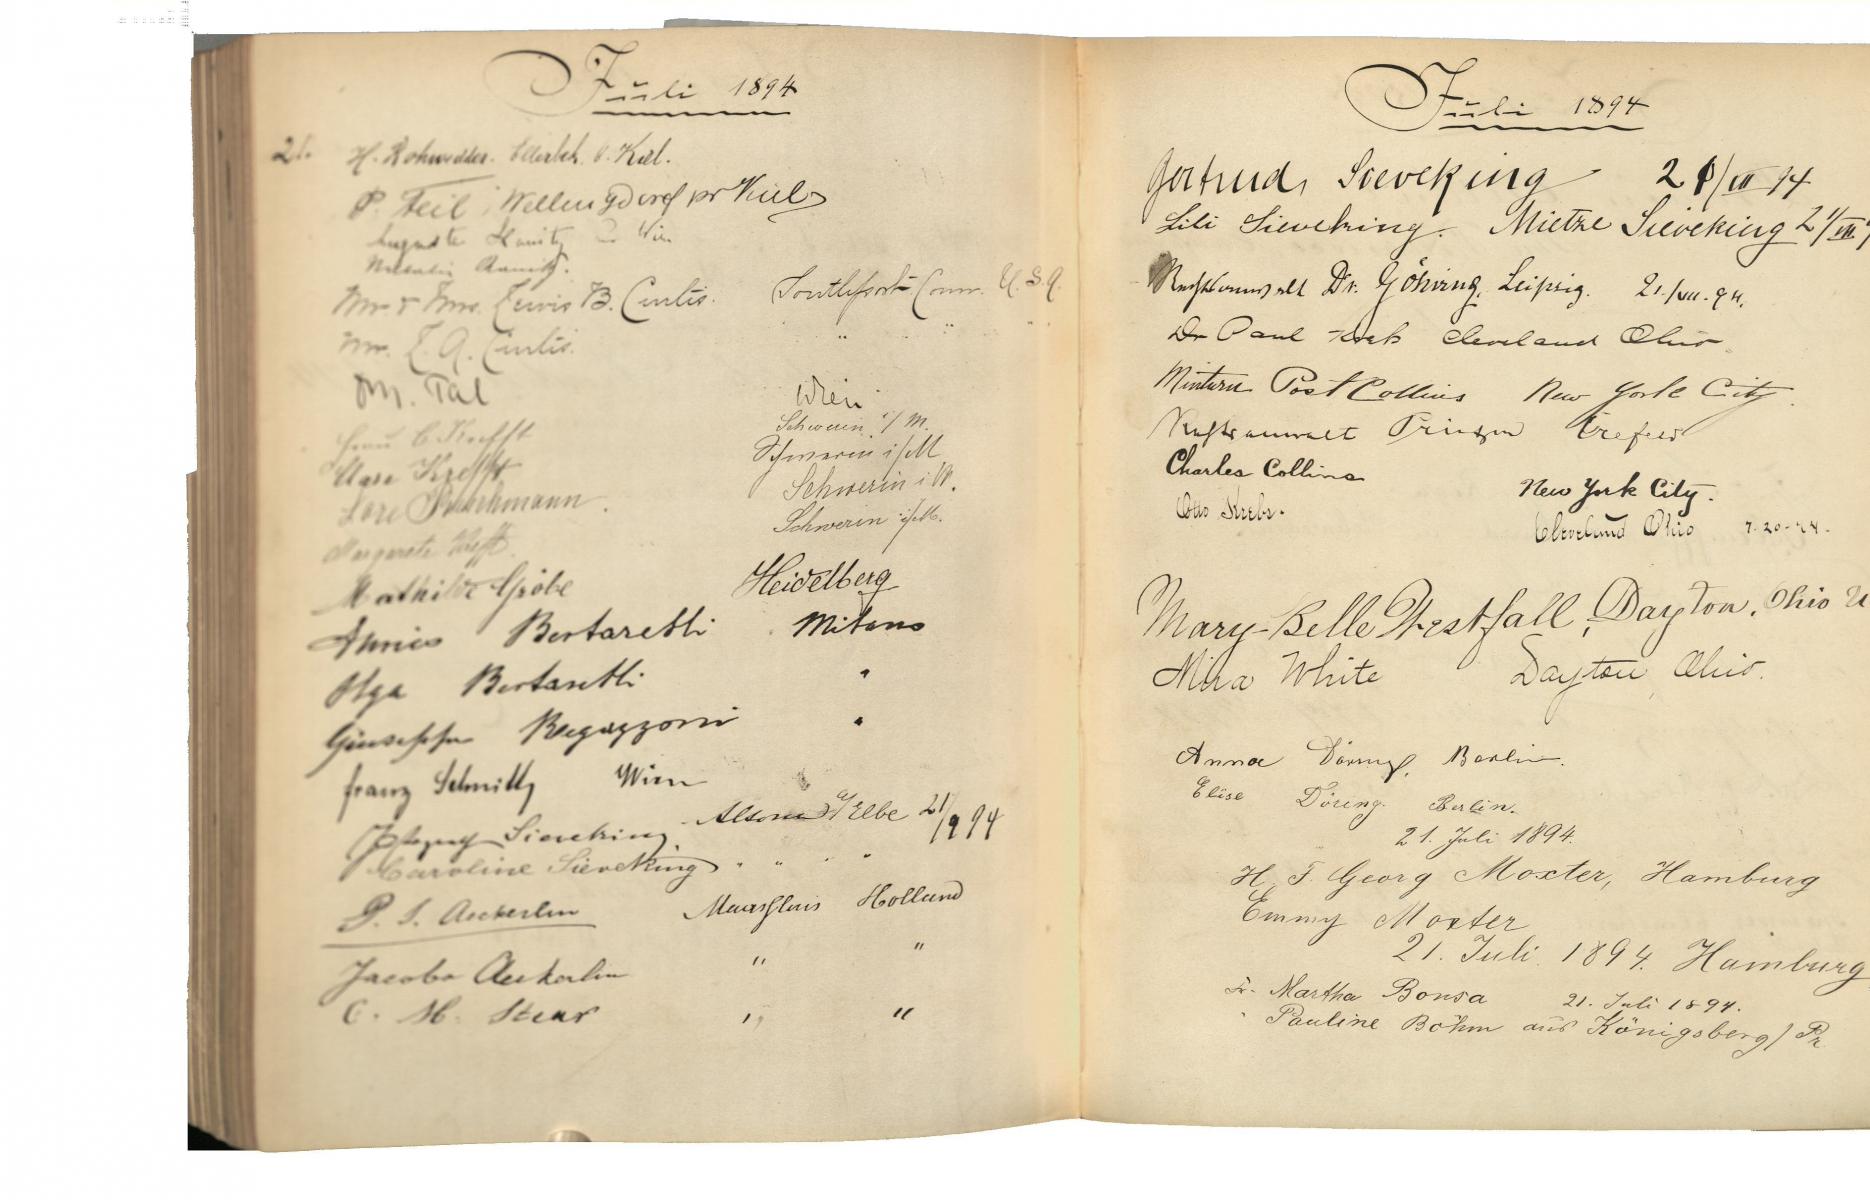 Juli 1894
21. H. Rohwedder. Ellerbek b. Kiel.
P. Feil, Wellingdorf pr Kiel
Auguste Wien
Mr & Mrs. Lewis B. Curtis. Southport Conn. U.S.A.
Mr. L. A. Curtis. " "
M. Tal Wien
Frau C. Krefft Schwerin i/M.
Clara Krefft Schwerin i/M
Schwerin i M.
Margarete Krefft Schwerin i/M.
Mathilde Gröbe Heidelberg
Bertarelli Milano
Olga Bertarelli "
Giuseppe Regazzoni "
Franz Schmidt Wien
Sieveking Altona a/Elbe 21/9 94
Caroline Sieveking " " " "
P. S. Aeckerlin Maassluis Holland
Jacoba Aeckerlin " "
C. M. Stear " "
Juli 1894
Gertrud Sieveking 21/VII 94
Lili Sieveking. Mietze Sieveking 21/VII
Rechtsanwalt Dr. Göhring, Leipzig. 21./VII. 94.
Dr Paul Cleveland Ohio
Minturn Post Collins New York City.
Rechtsanwalt Prinzen Crefeld
Charles Collins New York City.
Otto Krebs. Cleveland Ohio 7-20-94-
Mary-Belle Westfall, Dayton, Ohio U
Mira White Dayton, Ohio.
Anna Döring, Berlin.
Elise Döring. Berlin.
21. Juli 1894.
H. F. Georg Moxter, Hamburg
Emmy Moxter
21. Juli 1894. Hamburg
Fr. Martha Bonsa 21. Juli 1894.
" Pauline Böhm aus Königsberg / Pr